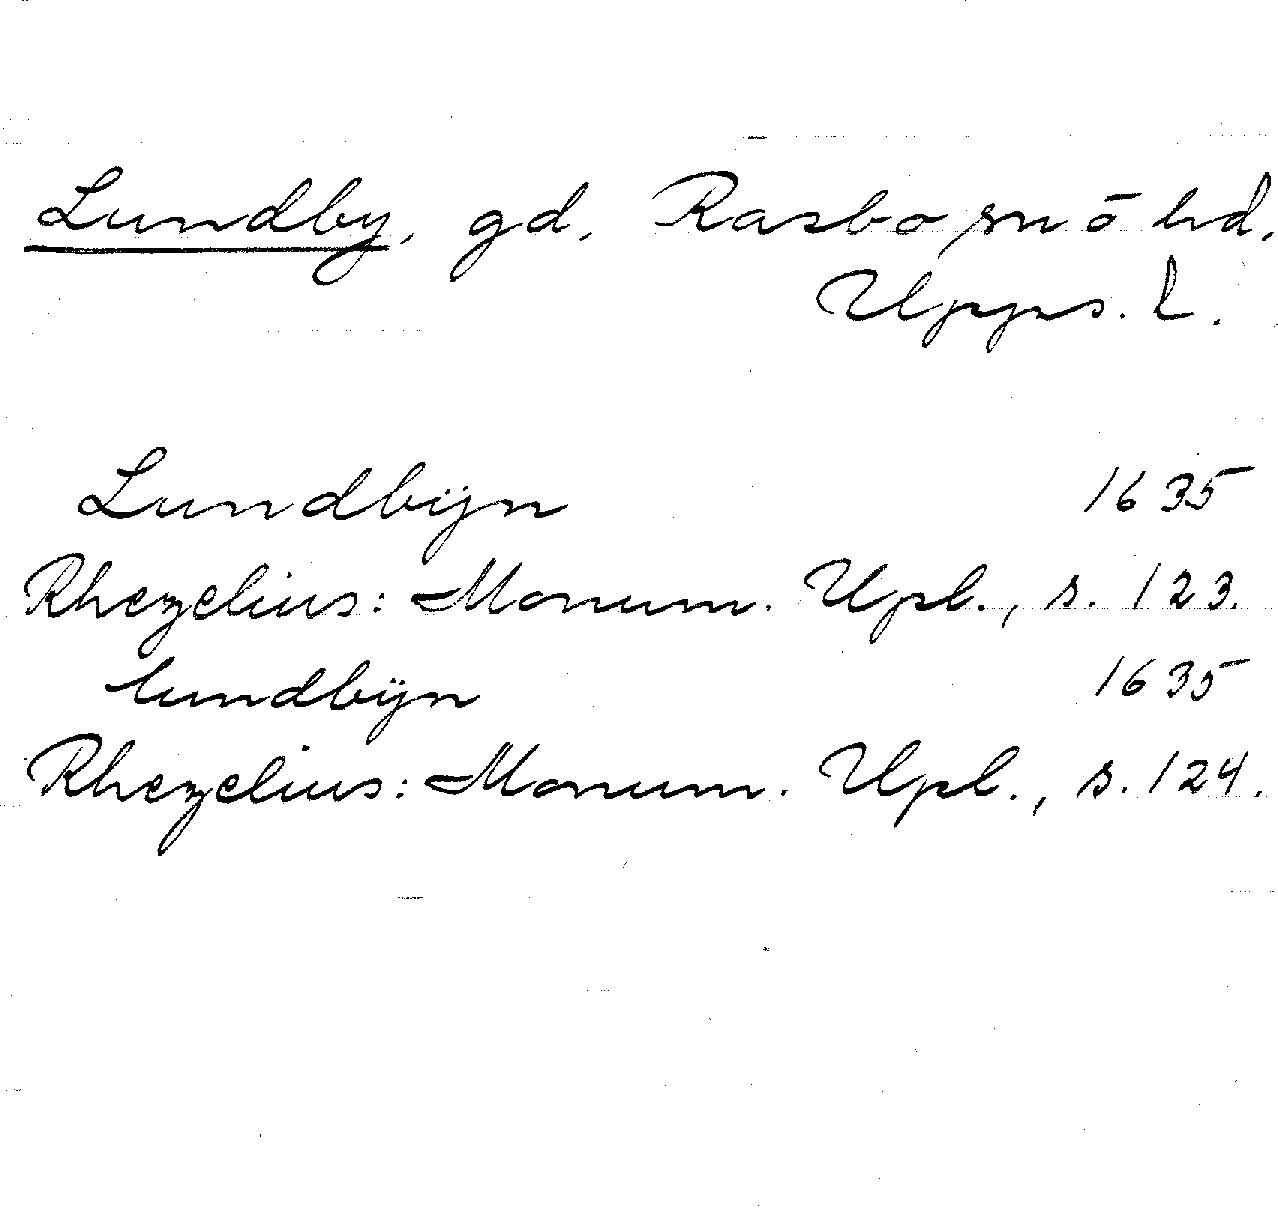 Lundby, gd, Rasbo sn ō hd.
Upps. l.
Lundbÿn 1635
Rhezelius: Monum. Upl., s. 123.
lundbÿn 1635
Rhezelius: Monum. Upl., s. 124.